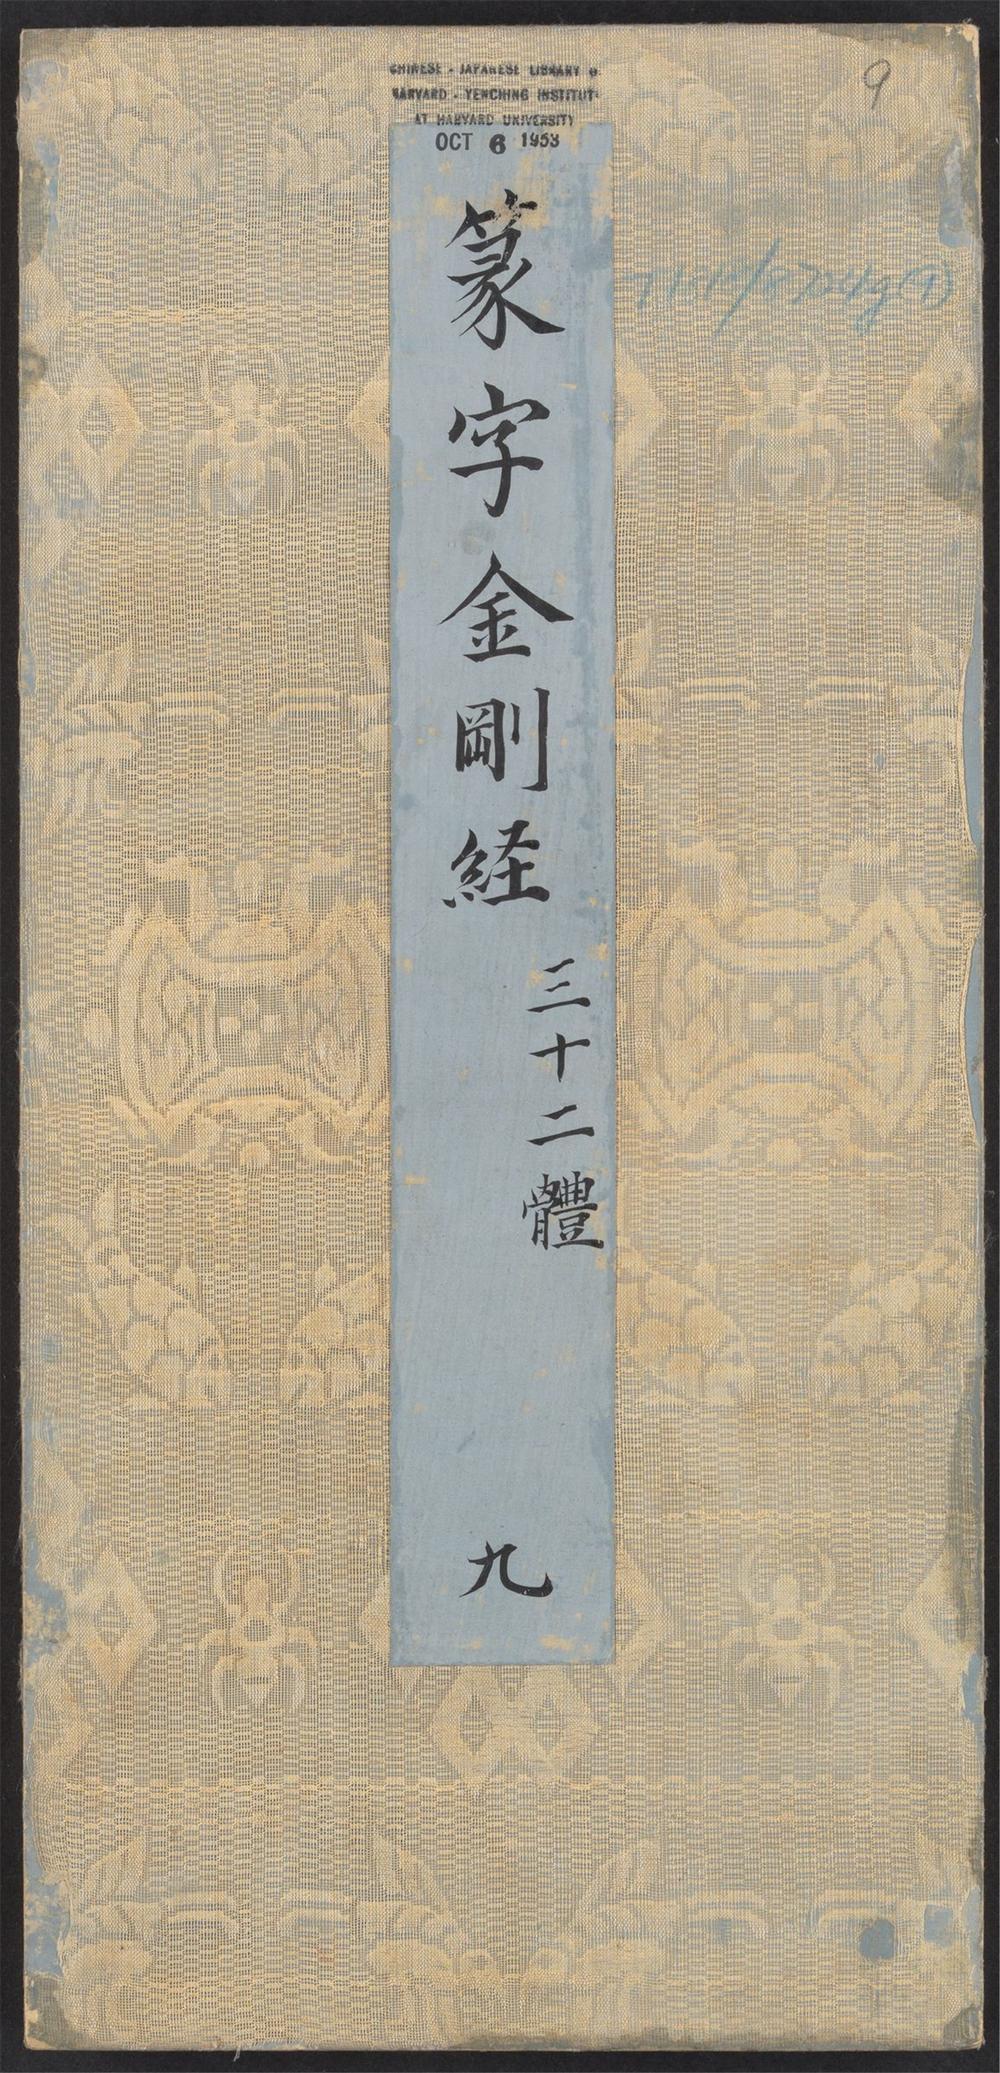 CHINESE - JAPANESE LIBRARY O
HARVARD - YENCHING INSTITUT
AT HARVARD UNIVERSITY
OCT 6 1953
9
篆字金剛経
三十二體
九